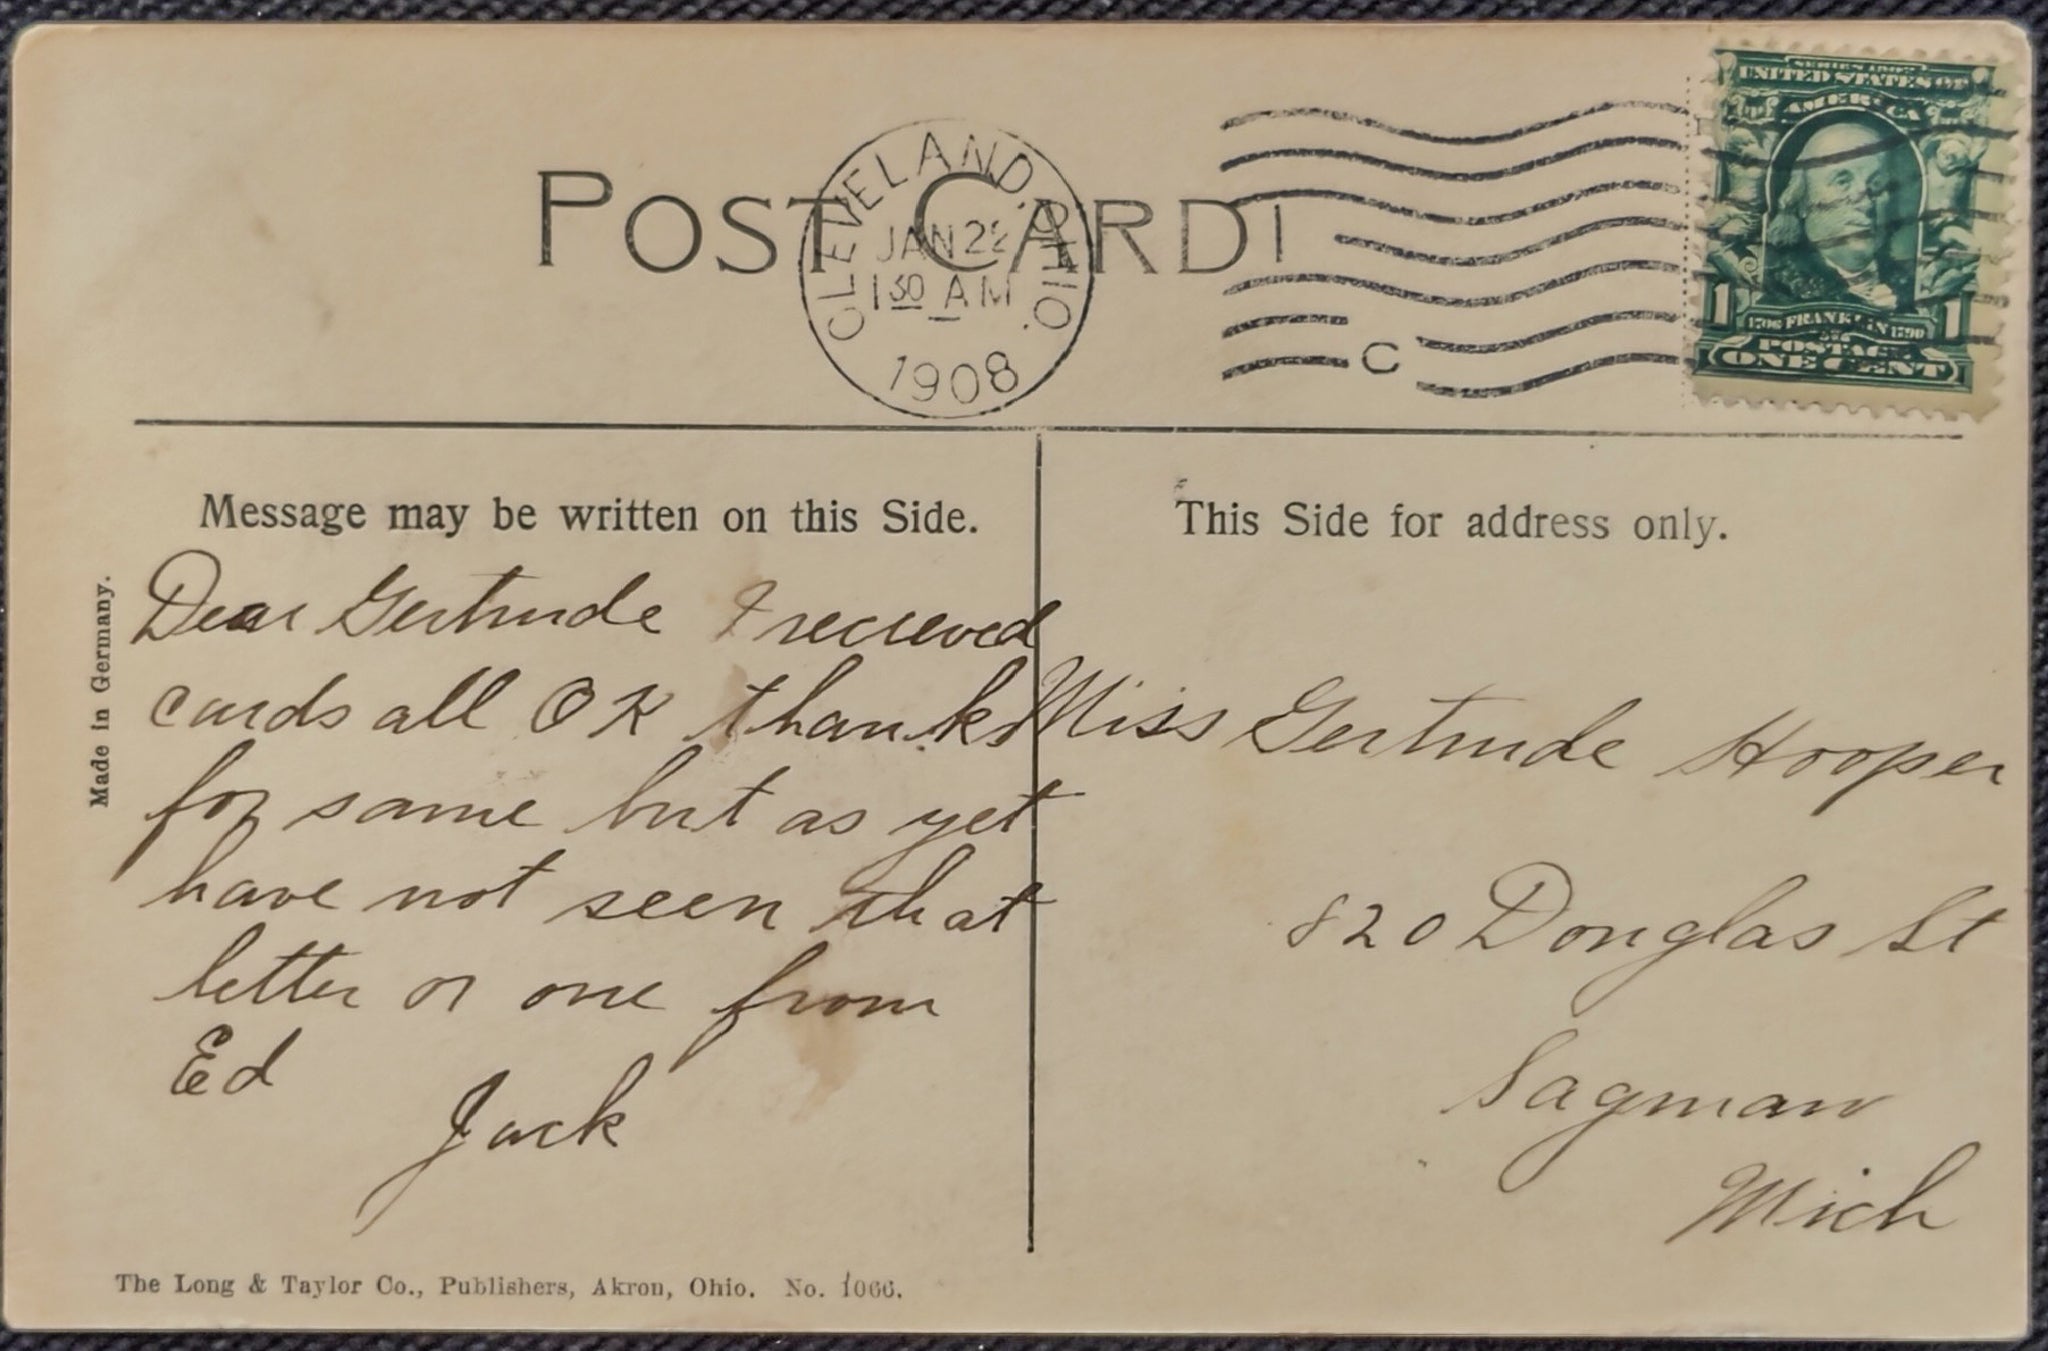 POST CARD
CLEVELAND, OHIO.
JAN 22
1 30 AM
1908
C
SERIES 1902
UNITED STATES OF
AMERICA
1 1706 FRANKLIN 1790 1
POSTAGE
ONE CENT
Message may be written on this Side.
Dear Gertrude I recieved
cards all OK thanks
for same but as yet
have not seen that
letter or one from
Ed
Jack
This Side for address only.
Miss Gertrude Hooper
820 Douglas St
Saginaw
Mich
Made in Germany.
The Long & Taylor Co., Publishers, Akron, Ohio. No. 1066.